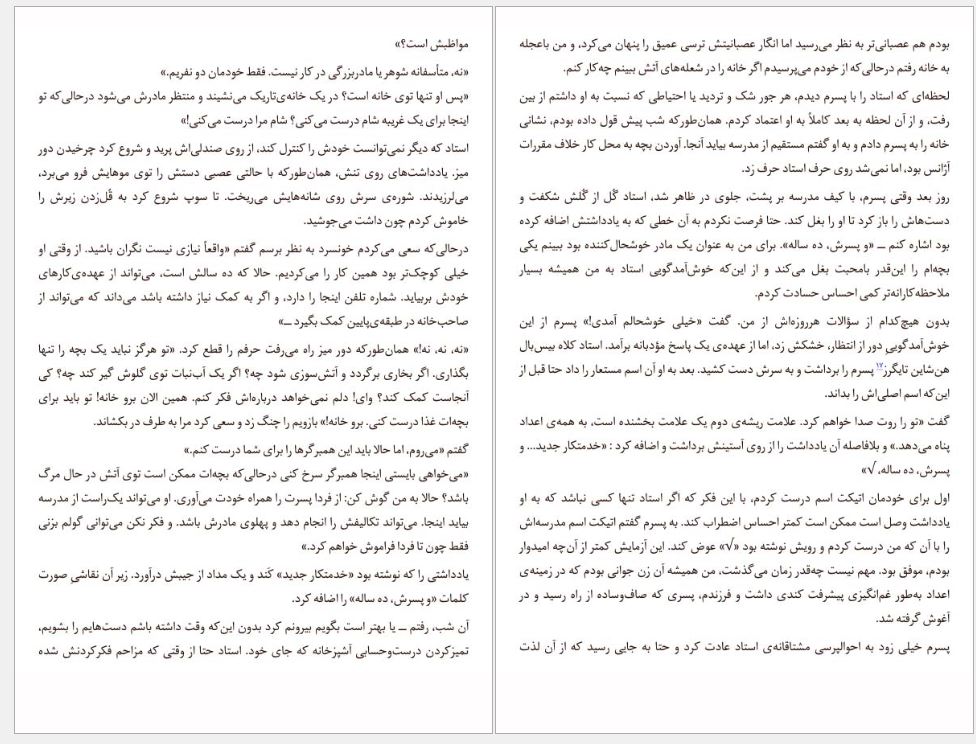 مواظبش است؟»
«نه، متأسفانه شوهر یا مادربزرگی در کار نیست. فقط خودمان دو نفریم.»
«پس او تنها توی خانه است؟ در یک خانه‌ی‌تاریک می‌نشیند و منتظر مادرش می‌شود درحالی‌که تو
اینجا برای یک غریبه شام درست می‌کنی؟ شام مرا درست می‌کنی!»
استاد که دیگر نمی‌توانست خودش را کنترل کند، از روی صندلی‌اش پرید و شروع کرد چرخیدن دور
میز. یادداشت‌های روی تنش، همان‌طورکه با حالتی عصبی دستش را توی موهایش فرو می‌برد،
می‌لرزیدند. شوره‌ی سرش روی شانه‌هایش می‌ریخت. تا سوپ شروع کرد به قُل‌زدن زیرش را
خاموش کردم چون داشت می‌جوشید.
درحالی‌که سعی می‌کردم خونسرد به نظر برسم گفتم «واقعاً نیازی نیست نگران باشید. از وقتی او
خیلی کوچک‌تر بود همین کار را می‌کردیم. حالا که ده سالش است، می‌تواند از عهده‌ی‌کارهای
خودش بربیاید. شماره تلفن اینجا را دارد، و اگر به کمک نیاز داشته باشد می‌داند که می‌تواند از
صاحب‌خانه در طبقه‌ی‌پایین کمک بگیرد ــ»
«نه، نه، نه!» همان‌طورکه دور میز راه می‌رفت حرفم را قطع کرد. «تو هرگز نباید یک بچه را تنها
بگذاری. اگر بخاری برگردد و آتش‌سوزی شود چه؟ اگر یک آب‌نبات توی گلوش گیر کند چه؟ کی
آنجاست کمک کند؟ وای! دلم نمی‌خواهد درباره‌اش فکر کنم. همین الان برو خانه! تو باید برای
بچه‌ات غذا درست کنی. برو خانه!» بازویم را چنگ زد و سعی کرد مرا به طرف در بکشاند.
گفتم «می‌روم، اما حالا باید این همبرگرها را برای شما درست کنم.»
«می‌خواهی بایستی اینجا همبرگر سرخ کنی درحالی‌که بچه‌ات ممکن است توی آتش در حال مرگ
باشد؟ حالا به من گوش کن: از فردا پسرت را همراه خودت می‌آوری. او می‌تواند یک‌راست از مدرسه
بیاید اینجا. می‌تواند تکالیفش را انجام دهد و پهلوی مادرش باشد. و فکر نکن می‌توانی گولم بزنی
فقط چون تا فردا فراموش خواهم کرد.»
یادداشتی را که نوشته بود «خدمتکار جدید» کَند و یک مداد از جیبش درآورد. زیر آن نقاشی صورت
کلمات «و پسرش، ده ساله» را اضافه کرد.
آن شب، رفتم ــ یا بهتر است بگویم بیرونم کرد بدون این‌که وقت داشته باشم دست‌هایم را بشویم،
تمیزکردن درست‌وحسابی آشپزخانه که جای خود. استاد حتا از وقتی که مزاحم فکرکردنش شده
بودم هم عصبانی‌تر به نظر می‌رسید اما انگار عصبانیتش ترسی عمیق را پنهان می‌کرد، و من باعجله
به خانه رفتم درحالی‌که از خودم می‌پرسیدم اگر خانه را در شعله‌های آتش ببینم چه‌کار کنم.
لحظه‌ای که استاد را با پسرم دیدم، هر جور شک و تردید یا احتیاطی که نسبت به او داشتم از بین
رفت، و از آن لحظه به بعد کاملاً به او اعتماد کردم. همان‌طورکه شب پیش قول داده بودم، نشانی
خانه را به پسرم دادم و به او گفتم مستقیم از مدرسه بیاید آنجا. آوردن بچه به محل کار خلاف مقررات
آژانس بود، اما نمی‌شد روی حرف استاد حرف زد.
روز بعد وقتی پسرم، با کیف مدرسه بر پشت، جلوی در ظاهر شد، استاد گُل از گُلش شکفت و
دست‌هاش را باز کرد تا او را بغل کند. حتا فرصت نکردم به آن خطی که به یادداشتش اضافه کرده
بود اشاره کنم ــ «و پسرش، ده ساله». برای من به عنوان یک مادر خوشحال‌کننده بود ببینم یکی
بچه‌ام را این‌قدر بامحبت بغل می‌کند و از این‌که خوش‌آمدگویی استاد به من همیشه بسیار
ملاحظه‌کارانه‌تر کمی احساس حسادت کردم.
بدون هیچ‌کدام از سؤالات هرروزه‌اش از من. گفت «خیلی خوشحالم آمدی!» پسرم از این
خوش‌آمدگویی دور از انتظار، خشکش زد، اما از عهده‌ی یک پاسخ مؤدبانه برآمد. استاد کلاه بیس‌بال
هن‌شاین تایگرز۱۷ پسرم را برداشت و به سرش دست کشید. بعد به او آن اسم مستعار را داد حتا قبل از
این‌که اسم اصلی‌اش را بداند.
گفت «تو را روت صدا خواهم کرد. علامت ریشه‌ی دوم یک علامت بخشنده است، به همه‌ی اعداد
پناه می‌دهد.» و بلافاصله آن یادداشت را از روی آستینش برداشت و اضافه کرد : «خدمتکار جدید... و
پسرش، ده ساله، √»
اول برای خودمان اتیکت اسم درست کردم، با این فکر که اگر استاد تنها کسی نباشد که به او
یادداشت وصل است ممکن است کمتر احساس اضطراب کند. به پسرم گفتم اتیکت اسم مدرسه‌اش
را با آن که من درست کردم و رویش نوشته بود «√» عوض کند. این آزمایش کمتر از آن‌چه امیدوار
بودم، موفق بود. مهم نیست چه‌قدر زمان می‌گذشت، من همیشه آن زن جوانی بودم که در زمینه‌ی
اعداد به‌طور غم‌انگیزی پیشرفت کندی داشت و فرزندم، پسری که صاف‌وساده از راه رسید و در
آغوش گرفته شد.
پسرم خیلی زود به احوالپرسی مشتاقانه‌ی استاد عادت کرد و حتا به جایی رسید که از آن لذت